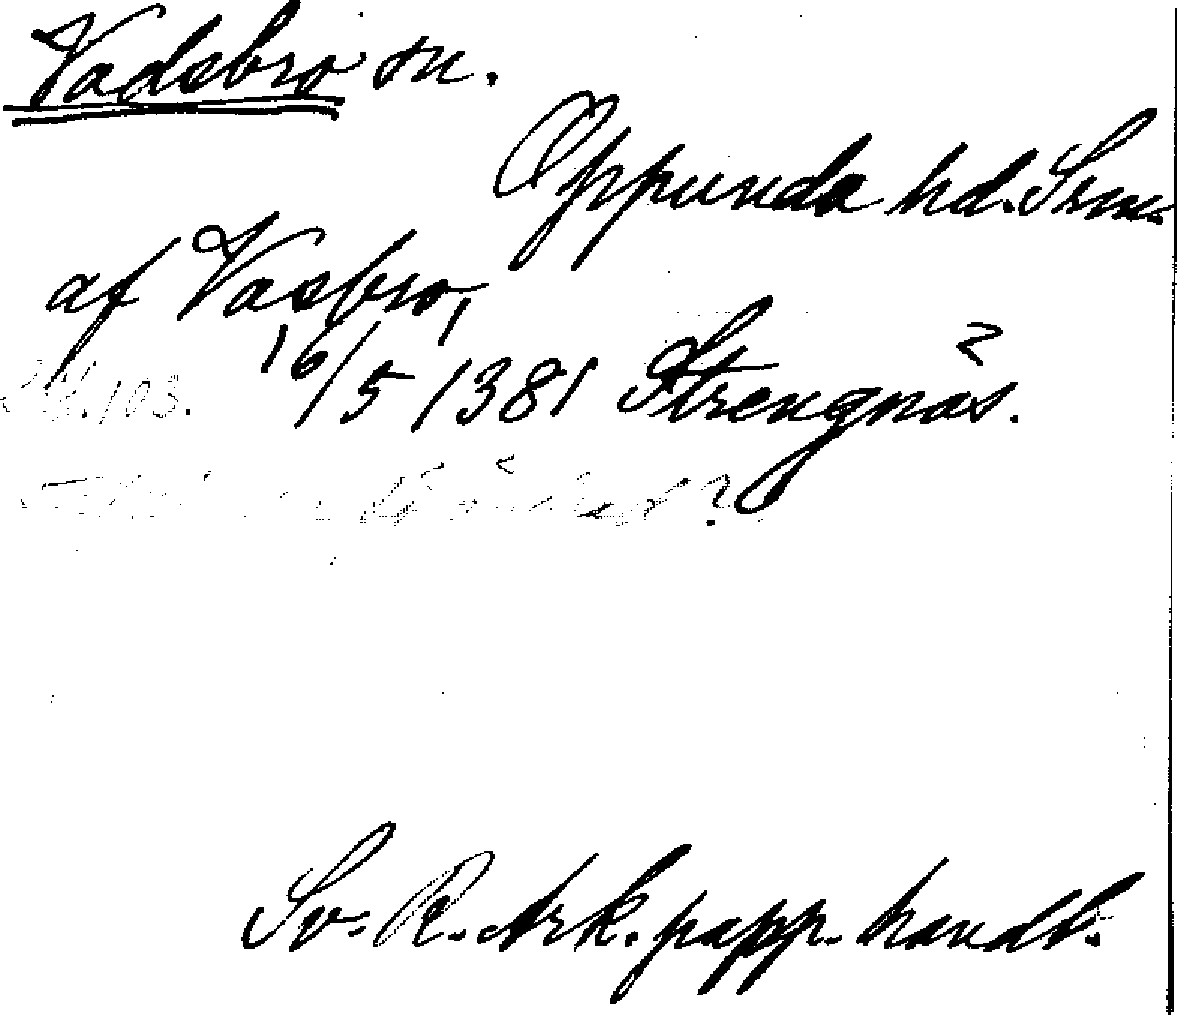 Vadsbro sn.
Oppunda hd. Srm.
af Vasbro,
16/5 1381 Strengnäs.
103.
Sv. R. Ark. papp. handl.